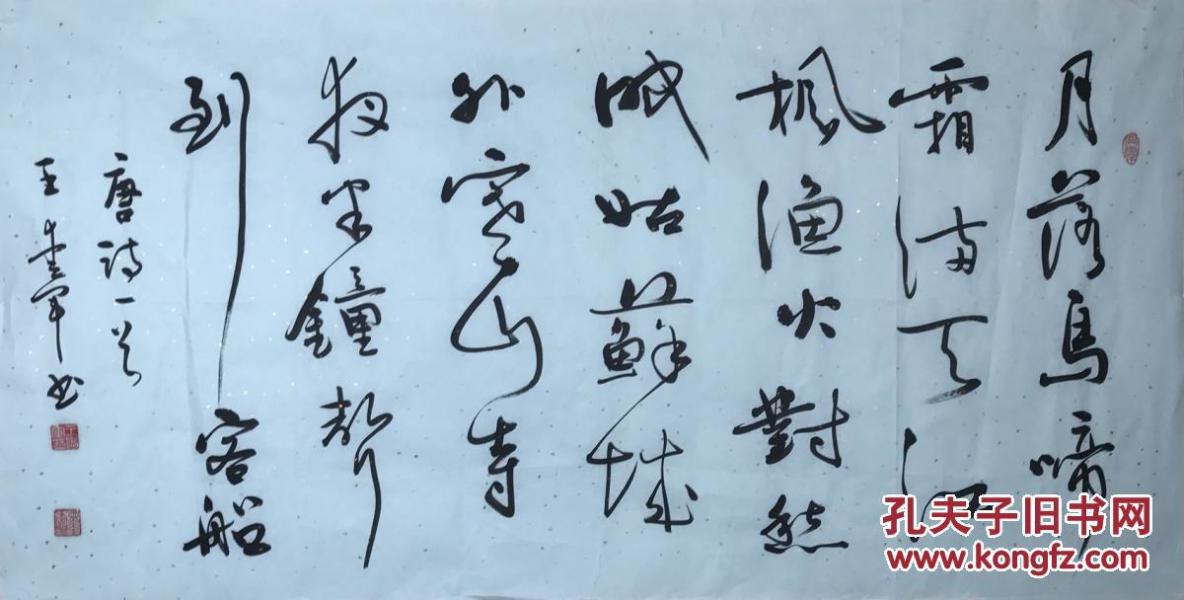 月落烏啼
霜满天江
枫渔火對愁
眠姑蘇城
外寒山寺
夜半鐘聲
到客船
唐诗一首
王军书
孔夫子旧书网
www.kongfz.com